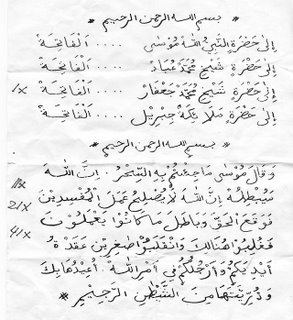 * بسم الله الرحمن الرحيم *
إِلَى حَضْرَةِ النَّبِيِّ اللهُ مُوْسَى .... اَلْفَاتِحَةْ
إِلَى حَضْرَةِ شَيْخ مُحَمَّدْ عِبَادْ .... اَلْفَاتِحَةْ
إِلَى حَضْرَةِ شَيْخ مُحَمَّدْ جَعْفَارْ .... اَلْفَاتِحَةْ 1x
إِلَى حَضْرَةِ مَلَا ئِكَةْ جِبْرِيْل .... اَلْفَاتِحَةْ
* بسم الله الرحمن الرحيم *
وَقَالَ مُوْسَى مَا جِئْتُمْ بِهِ السِّحْرُ . اِنَّ اللهَ
سَيُبْطِلُهُ اِنَّ اللهَ لَا يُصْلِحُ عَمَلَ الْمُفْسِدِيْنَ 11x
فَوَقَعَ الْحَقُّ وَبَاطَلَ مَا كَانُوْا يَعْمَلُوْنَ 21x
فَغُلِبُوْا هُنَالِكَ وَانْقَلَبُوْا صٰغِرِيْنَ عَقْدَةُ 41x
اَيْدِ يَكُمْ وَاَرْجُلُكُمْ فِي اَمْرِ اللهِ . اُعِيْذُهَا بِكَ
وَذُرِّيَّتَهَا مِنَ الشَّيْطٰنِ الرَّجِيْمِ *